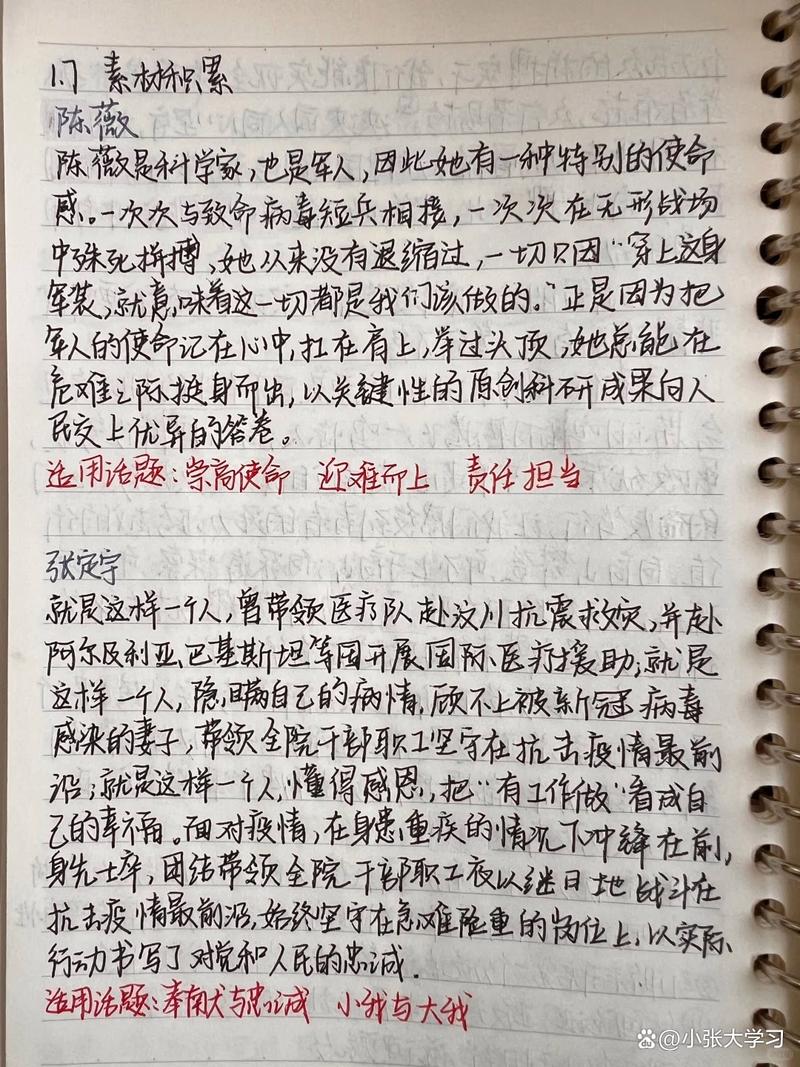 1.7 素材积累
陈薇
陈薇是科学家,也是军人,因此她有一种特别的使命
感。一次次与致命病毒短兵相接,一次次在无形战场
中殊死拼搏,她从来没有退缩过,一切只因“穿上这身
军装,就意味着这一切都是我们该做的。”正是因为把
军人的使命记在心中,扛在肩上,举过头顶,她总能在
危难之际挺身而出,以关键性的原创科研成果向人
民交上优异的答卷。
适用话题:崇高使命 迎难而上 责任担当
张定宇
就是这样一个人,曾带领医疗队赴汶川抗震救灾,并赴
阿尔及利亚、巴基斯坦等国开展国际医疗援助;就是
这样一个人,隐瞒自己的病情,顾不上被新冠病毒
感染的妻子,带领全院干部职工坚守在抗击疫情最前
沿;就是这样一个人,懂得感恩,把“有工作做”看成自
己的幸福。面对疫情,在身患重疾的情况下冲锋在前,
身先士卒,团结带领全院干部职工夜以继日地战斗在
抗击疫情最前沿,始终坚守在急难险重的岗位上,以实际
行动书写了对党和人民的忠诚.
适用话题:奉献与忠诚 小我与大我
小张大学习